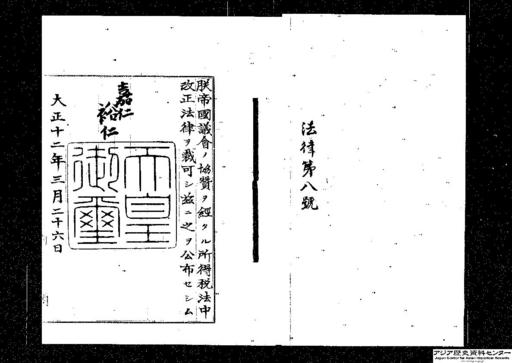 法律第八號
朕帝國議會ノ協贊ヲ經タル所得稅法中
改正法律ヲ裁可シ茲ニ之ヲ公布セシム
嘉仁
裕仁
天皇
御璽
大正十二年三月二十六日
アジア歴史資料センター
Japan Center for Asian Historical Records